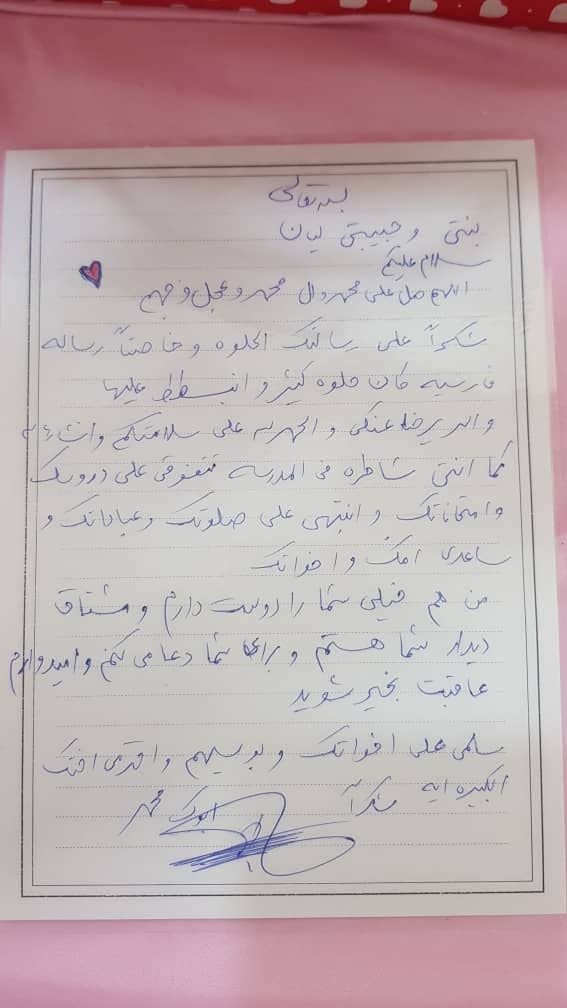 بسمه تعالی
بنتي و حبيبتي ليان
سلام عليكم
اللهم صل على محمد وال محمد وعجل فرجهم
شكراً على رسالتك الحلوه و خاصتاً رساله
فارسيه كان حلوه كثير و انبسطط عليها
و الله يرضا عنكي و الحمدلله على سلامتكم وانشاءالله
كما انتي شاطره في المدرسه تتفوقي على دروسك
وامتحاناتك و انتبهي على صلوتك وعباداتك و
ساعدي امك و اخواتك
من هم خیلی شما را دوست دارم و مشتاق
دیدار شما هستم و برای شما دعا می کنم و امیدوارم
عاقبت بخیر شوید
سلمي على اخواتك و بوسيهم واقدمي اختك
الكبيره ايه شكراً ابوك محمد